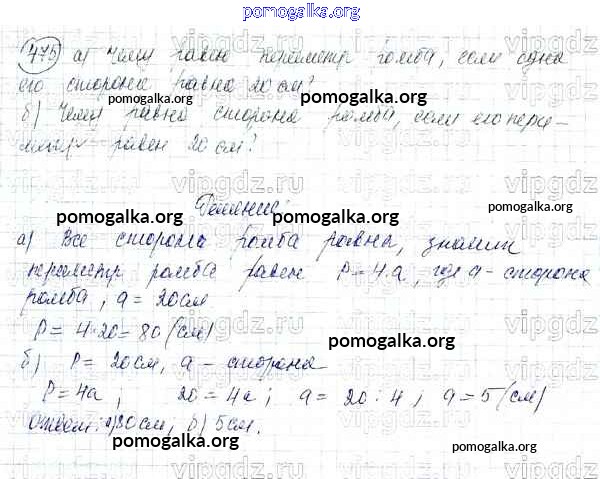 pomogalka.org
475 а) Чему равен периметр ромба, если одна
его сторона равна 20 см?
pomogalka.org pomogalka.org
б) Чему равна сторона ромба, если его пери-
метр равен 20 см?
vipgdz.ru vipgdz.ru vipgdz.ru
Решение:
pomogalka.org pomogalka.org
а) Все стороны ромба равны, значит
периметр ромба равен P = 4·a, где a - сторона
ромба, a = 20см
vipgdz.ru vipgdz.ru vipgdz.ru
P = 4·20 = 80 (см)
б) P = 20см, a - сторона
P = 4a; 20 = 4a; a = 20 : 4; a = 5 (см)
Ответ: а) 80см, б) 5см.
pomogalka.org pomogalka.org
vipgdz.ru vipgdz.ru vipgdz.ru